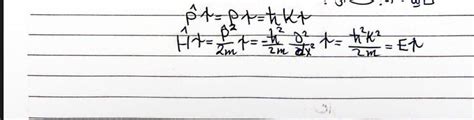 p̂ψ = pψ = ħkψ
Ĥψ = p̂²/2m ψ = -ħ²/2m ∂²/∂x² ψ = ħ²k²/2m = Eψ